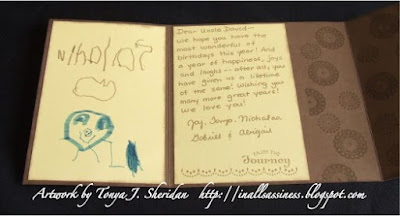 Dear Uncle David—
we hope you have the
most wonderful of
birthdays this year! And
a year of happiness, joys
and laughs—after all, you
have given us a lifetime
of the same! Wishing you
many more great years!
We love you!
Jay, Tonya, Nicholas,
Gabriel & Abigail
enjoy the
Journey
Artwork by Tonya J. Sheridan http://inallsassiness.blogspot.com